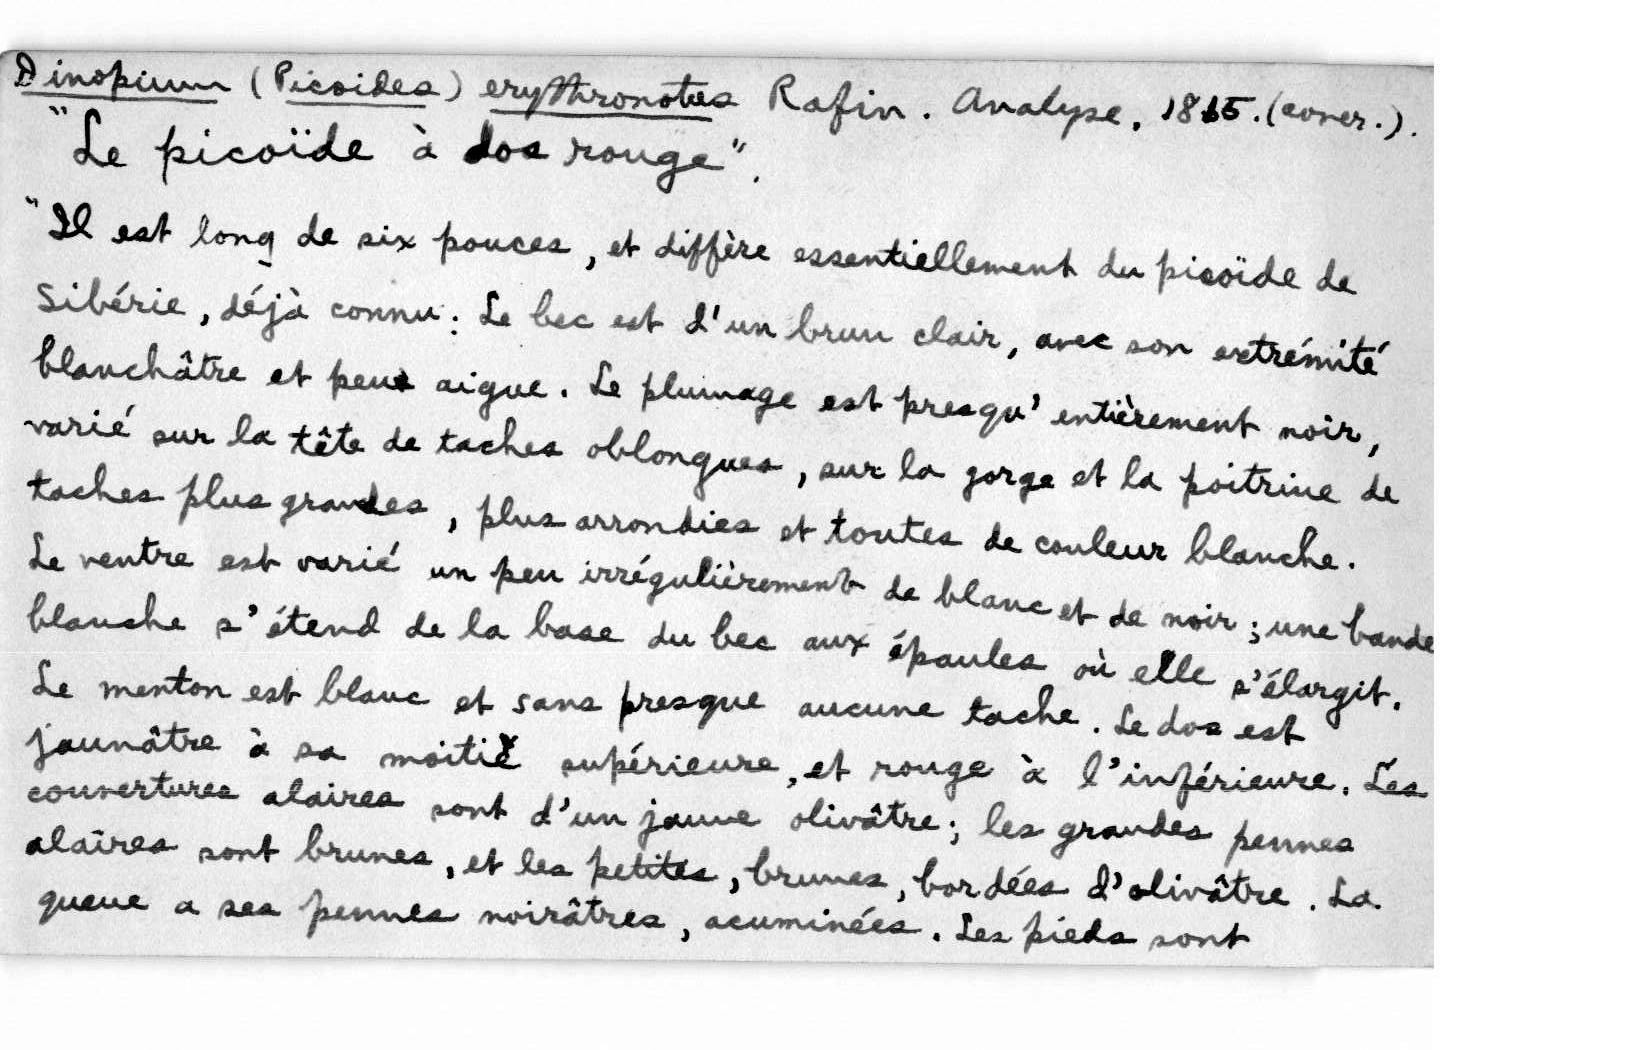 Dinopium (Picoides) erythronotus Rafin. Analyse, 1815. (cover.).
"Le picoïde à dos rouge".
"Il est long de six pouces, et diffère essentiellement du picoïde de
Sibérie, déjà connu: Le bec est d'un brun clair, avec son extrémité
blanchâtre et peu aigue. Le plumage est presqu'entièrement noir,
varié sur la tête de taches oblongues, sur la gorge et la poitrine de
taches plus grandes, plus arrondies et toutes de couleur blanche.
Le ventre est varié un peu irrégulièrement de blanc et de noir; une bande
blanche s'étend de la base du bec aux épaules où elle s'élargit.
Le menton est blanc et sans presque aucune tache. Le dos est
jaunâtre à sa moitié supérieure, et rouge à l'inférieure. Les
couvertures alaires sont d'un jaune olivâtre; les grandes pennes
alaires sont brunes, et les petites, brunes, bordées d'olivâtre. La
queue a ses pennes noirâtres, acuminées. Les pieds sont